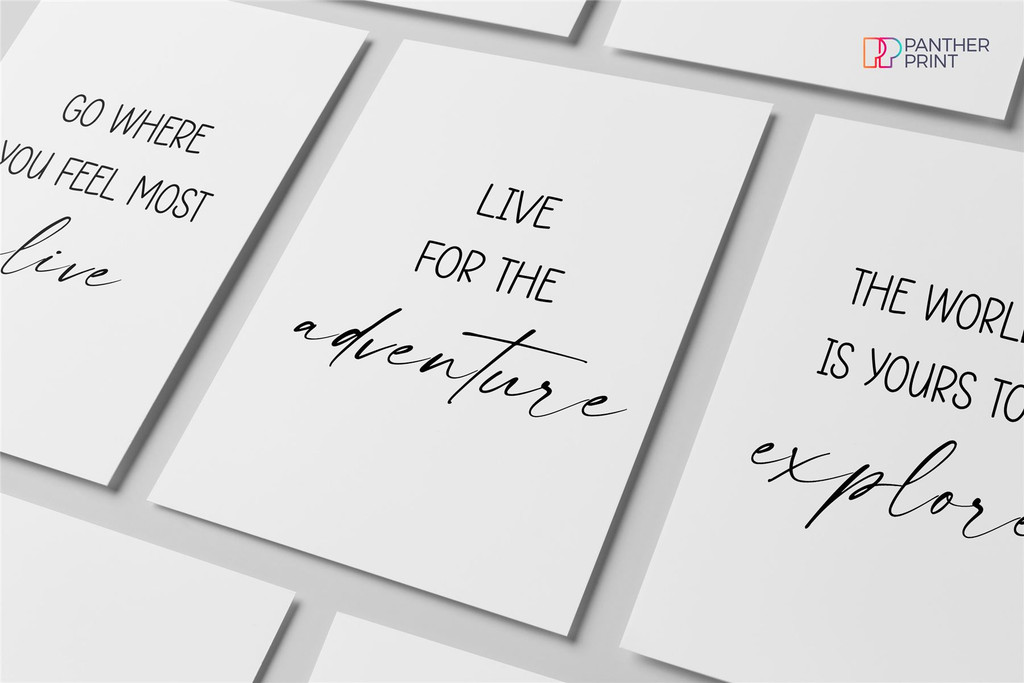 PANTHER
PRINT
GO WHERE
YOU FEEL MOST
live
LIVE
FOR THE
adventure
THE WORL
IS YOURS TO
explore